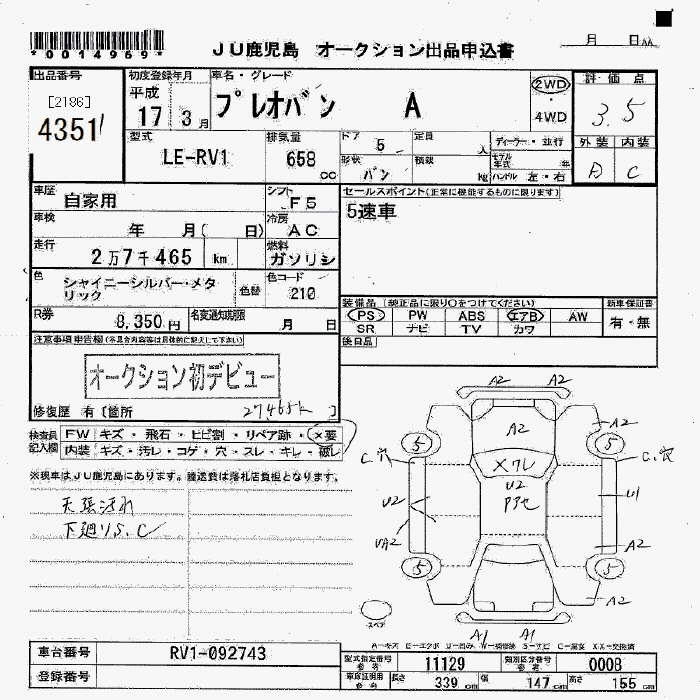 *0014969*
JU鹿児島 オークション出品申込書
月 日
出品番号
[2186]
4351
初度登録年月
平成
17 3月
車名・グレード
プレオバン A
2WD
4WD
評価点
3.5
外装 内装
D C
型式
LE-RV1
排気量
658
cc
ドア 5
形状 バン
定員 人
積載 kg
ディーラー・並行
モデル年式 年
ハンドル 左・右
車歴
自家用
シフト
F5
セールスポイント(正常に機能するものに限ります)
5速車
車検
年 月( 日)
冷房
AC
走行
2万7千465 km
燃料
ガソリン
色
シャイニーシルバー・メタリック
色替
色コード
210
装備品(純正品に限り○をつけてください)
PS PW ABS エアB AW
SR ナビ TV カワ
新車保証書
有・無
R券
8,350円
名変通知期限
月 日
後日品
注意事項
オークション初デビュー
修復歴 有〔箇所 27465k 〕
検査員記入欄
FW キズ・飛石・ヒビ割・リペア跡・×要
内装 キズ・汚レ・コゲ・穴・スレ・キレ・破レ
※現車はJU鹿児島にあります。陸送費は落札店負担となります。
天張汚れ
下廻りS.C
A2 A2
A2
A2
5 5
C.穴 C.穴
XワレU2
U2
U1
UA2
A2
5 5
A2
A1 A1
スペア
A=キズ E=エクボ U=凹み W=補修跡 S=サビ C=腐食 XX=交換済
車台番号
RV1-092743
登録番号
型式指定番号
参考
11129
類別区分番号
参考
0008
車庫証明用
参考
長さ 339cm
幅 147cm
高さ 155cm